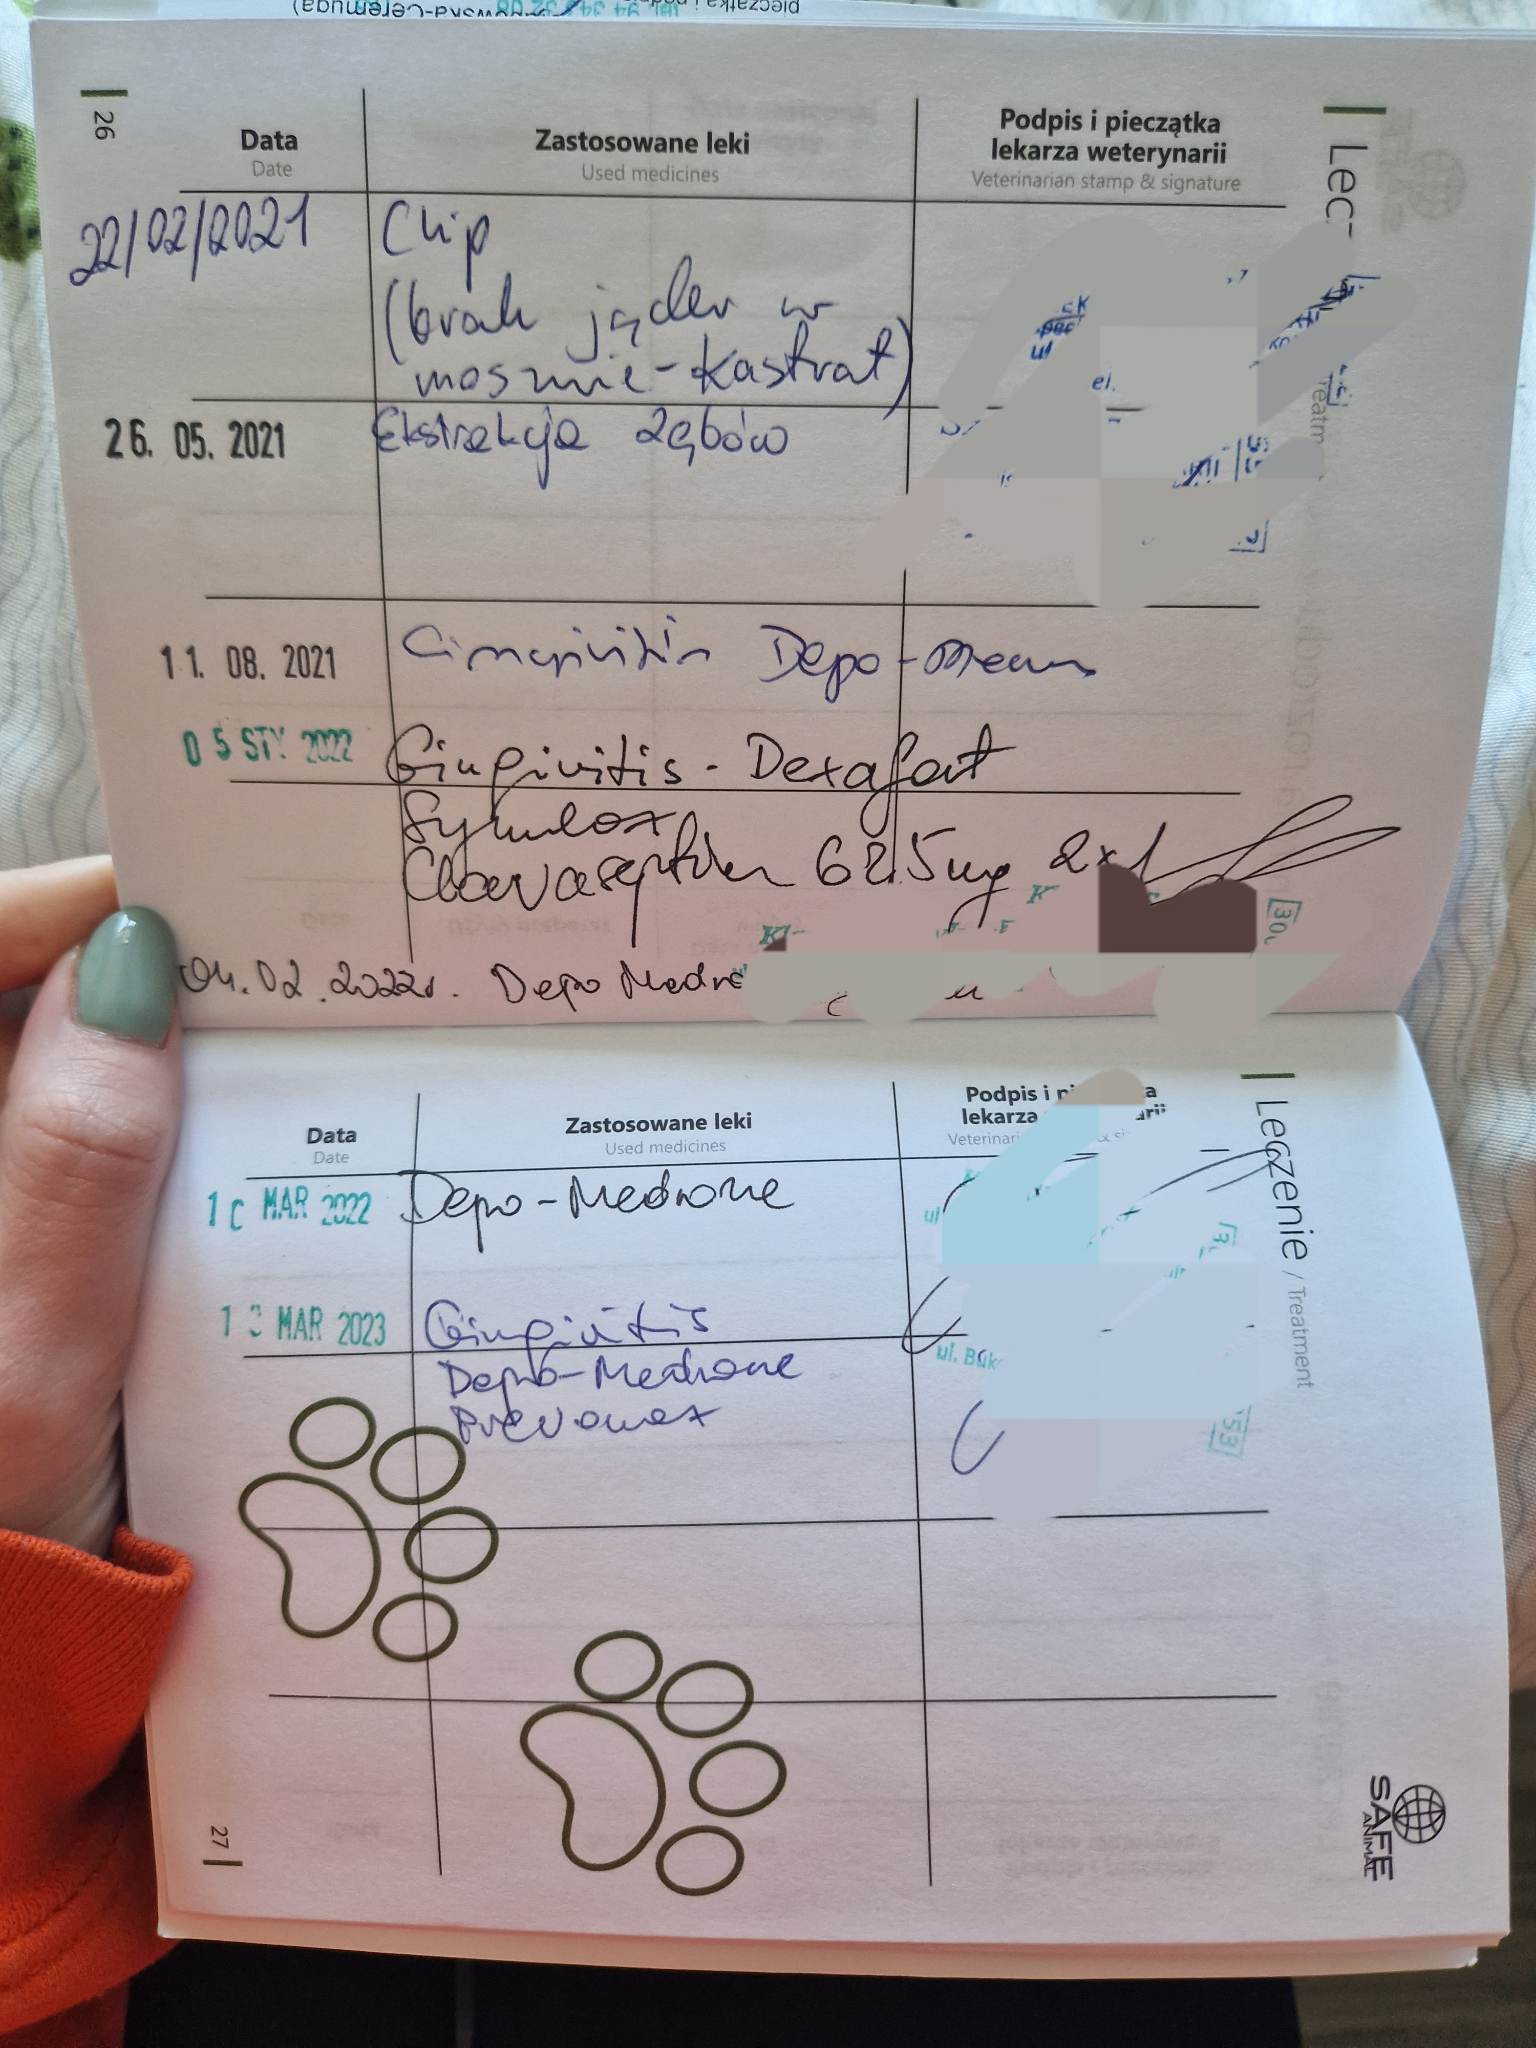 26
Data
Date
Zastosowane leki
Used medicines
Podpis i pieczątka
lekarza weterynarii
Veterinarian stamp & signature
22/02/2021
Chip
(brak jąder w
mosznie - kastrat)
26. 05. 2021
Ekstrakcja zębów
11. 08. 2021
Depo-
05 STY 2022
Gingivitis - Dexafort
Synulox
Clavaseptin 62,5mg 2x1
04.02.2022r. Depo Medro
Data
Date
Zastosowane leki
Used medicines
Podpis i
lekarza
MAR 2022
Depo-Medrone
MAR 2023
Gingivitis
Depo-Medrone
Prevomax
ul. Buk
Leczenie / Treatment
27
SAFE
ANIMAL